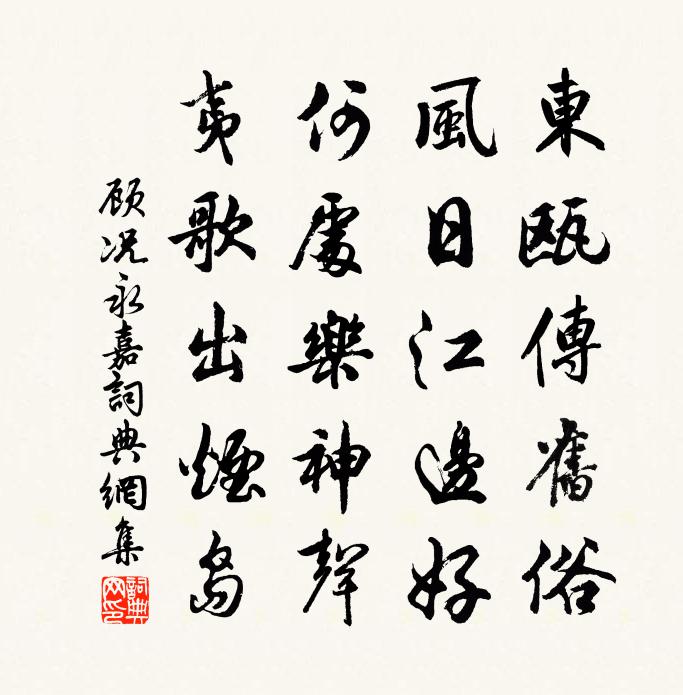 東甌傳舊俗
風日江邊好
何處樂神聲
夷歌出煙島
顾况永嘉詞典網集
詞典網印